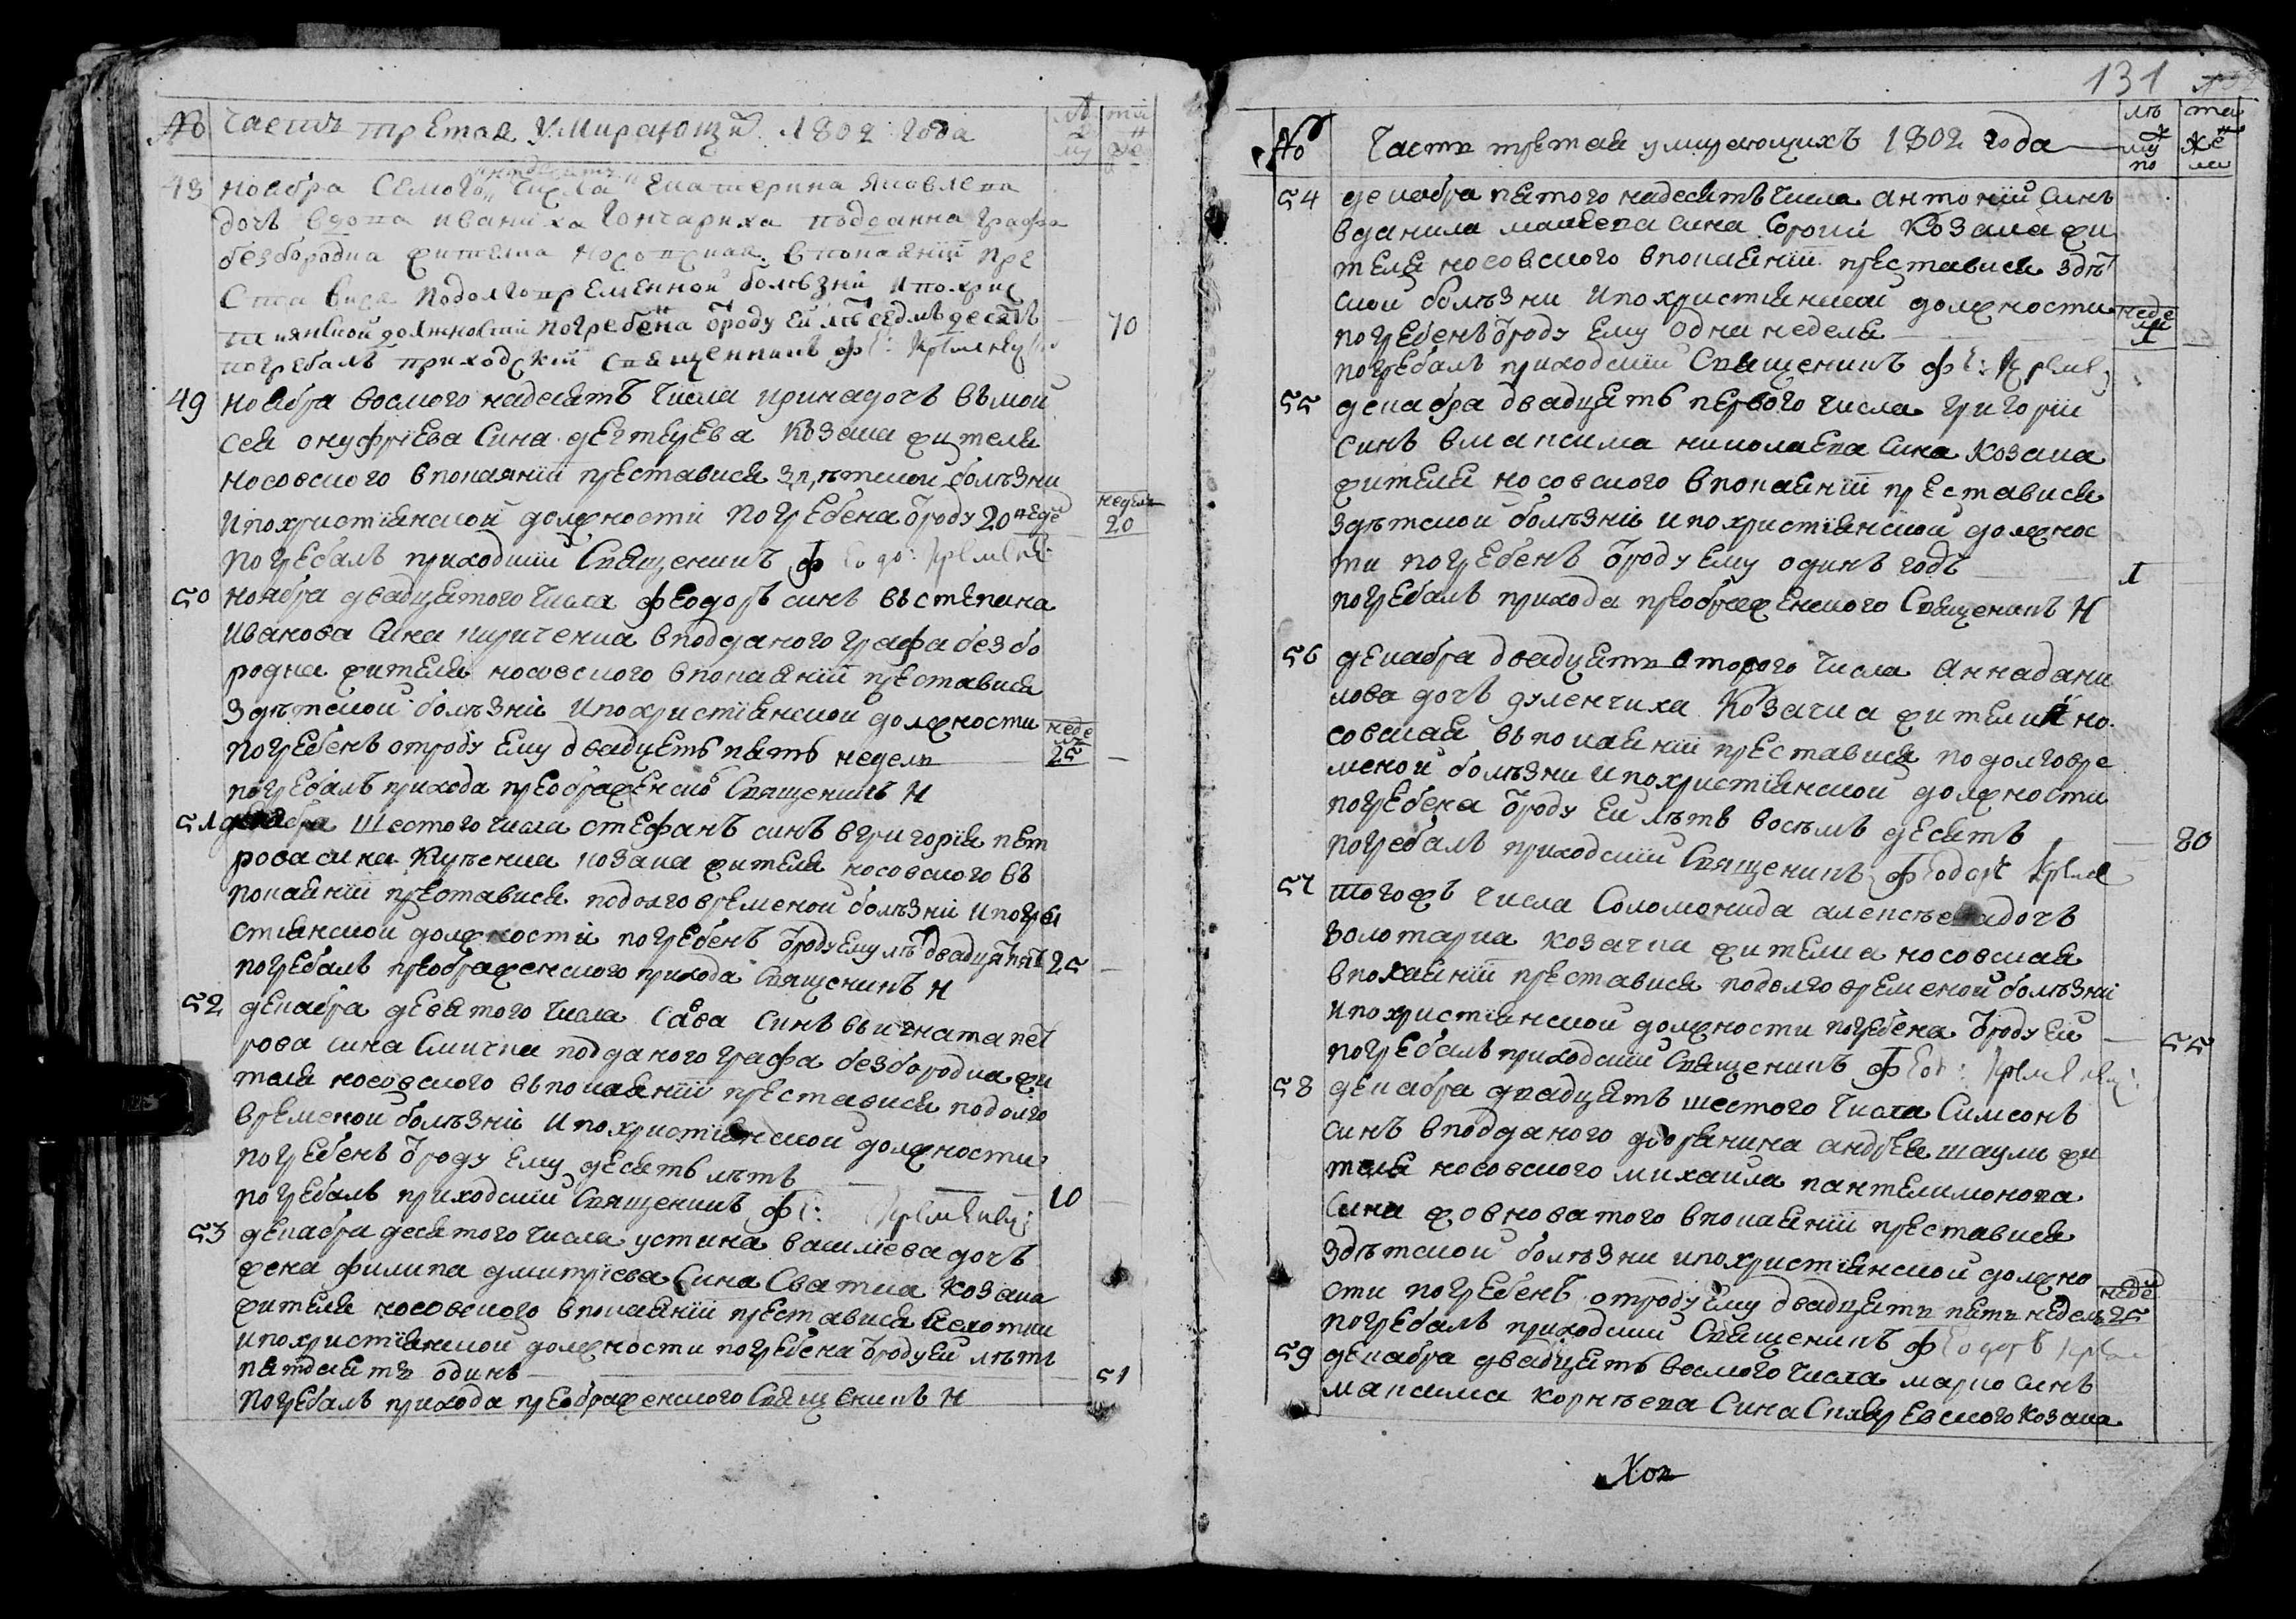 № Часть третая умирающихъ 1802 года
48 ноабра семого надесять числа Екатерина Яковлева
дочъ вдова иваниха Гончариха подданна графа
безбородка жителка носовская впокаянїи пре
ставися подолговременной болѣзнї ипохрис
тиянской должностїи погребена ѿроду ей лѣтъ седмъдесятъ 70
погребалъ приходскїй священникъ
49 ноабра восмого надесятъ числа иринадочъ въмои
сея онуфрїева сина дегтяева козака жителя
носовского впокаянїи преставися здѣтской болѣзни
ипохристїянской должностї погребена ѿроду 20 неде
неделъ 20
погребалъ приходскїй Священикъ
50 ноября двадцятого числа феодоръ синъ въстепана
иванова сина кириченка вподданого графа безбо
родка жителя носовского впокаянїи преставися
здѣтской болѣзнї ипохристїянской должности
погребенъ отроду ему двадцять пять неделъ
неде 25
погребалъ прихода преображенско Священикъ Н
51 декабра шестого числа стефанъ синъ вгригорїя пет
рова сина куценка козака жителя носовского въ
покаянїи преставися подолговременой болѣзнї ипохри
стиянской должностї погребенъ ѿроду ему лѣтъ двадцятпять 25
погребалъ преображенского прихода священикъ Н
52 декабра девятого числа сава синъ въигната пет
рова сина смичка подданого графа безбородка жи
теля носовского въпокаянїи преставися подолго
временой болѣзнї ипохристїянской должности
погребенъ ѿроду ему десять лѣтъ 10
погребалъ приходскїй Священикъ
53 декабра десятого числа устина василїева дочъ
жена филипа дмитрїева сина Сватка козака
жителя носовского впокаянїи преставися
ипохристїянской должности погребена ѿроду ей лѣтъ
пятдесятъ одинъ 51
погребалъ прихода преображенского Священикъ Н
131
№ Часть третая умирающихъ 1802 года
54 декабра пятого надесятъ числа антонїй синъ
вданила сина козака жи
теля носовского впокаянїи преставися здѣт
ской болѣзни ипохристїянской должности
погребенъ ѿроду ему одна неделя
неде 1
погребалъ приходскїй Священикъ
55 декабра двадцять первого числа григорїй
синъ вмаксима николаева сина козака
жителя носовского впокаянїи преставися
здѣтской болѣзнї ипохристїянской должнос
ти погребенъ ѿроду ему одинъ годъ 1
погребалъ прихода преображенского Священикъ Н
56 декабра двадцять второго числа аннадани
лова дочъ дуленчиха козачка но
совская въпокаянїи преставися подолговре
меной болѣзни ипохристїянской должности
погребена ѿроду ей лѣтъ восъмъ десятъ 80
погребалъ приходскїй Священикъ феодоръ
57 тогожъ числа Соломонида алексѣевадочъ
золотарка козачка жителка носовская
впокаянїи преставися подолговременой болѣзнї
ипохристїянской должности погребена ѿроду ей 55
погребалъ приходскїй Священикъ
58 декабра двадцять шестого числа Симеонъ
синъ вподданого дворянина андрея шаули жи
теля носовского михаила пантелимонова
сина жовноватого впокаянїи преставися
здѣтской болѣзни ипохристїянской должно
сти погребенъ отроду ему двадцять пять неделъ
неде 25
погребалъ приходскїй Священикъ феодоръ
59 декабра двадцять восмого числа марко синъ
максима корнѣева сина козака